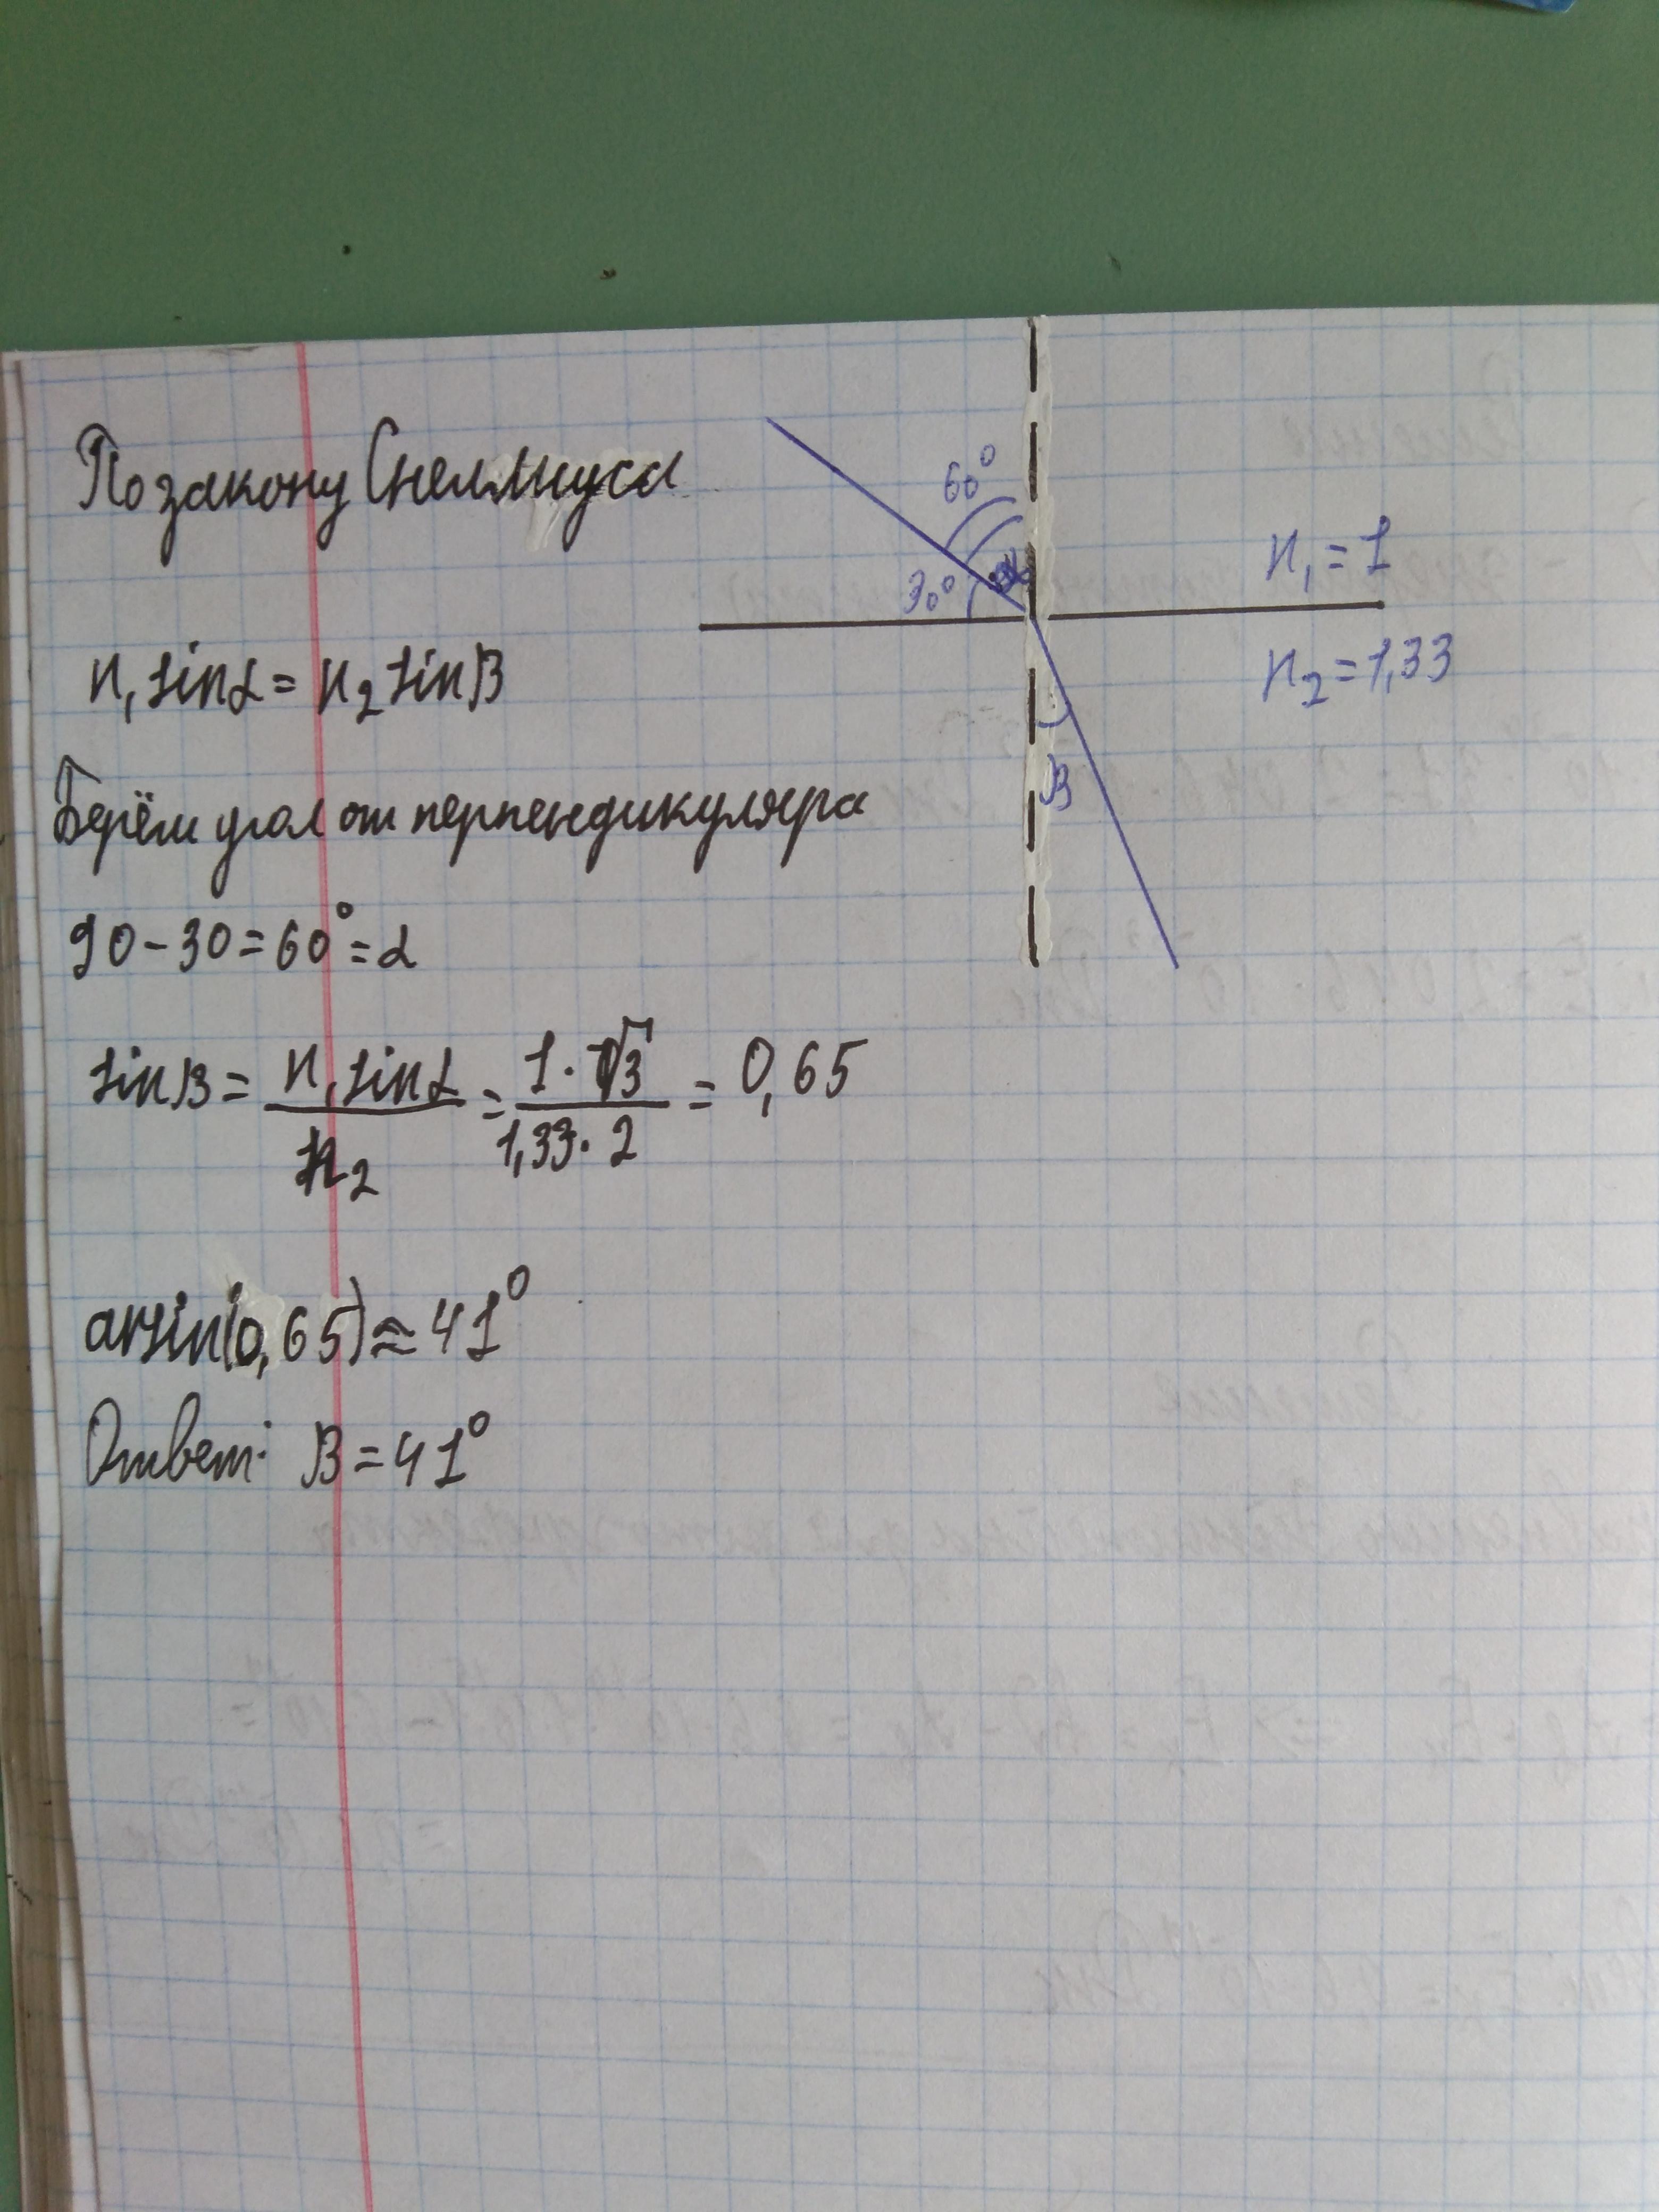 По закону Снеллиуса
60°
30°
n₁ = 1
n₂ = 1,33
β
n₁ sinα = n₂ sinβ
Берём угол от перпендикуляра
90 - 30 = 60° = α
sinβ = n₁ sinα / n₂ = 1 · √3 / 1,33 · 2 = 0,65
arsin(0,65) ≈ 41°
Ответ: β = 41°